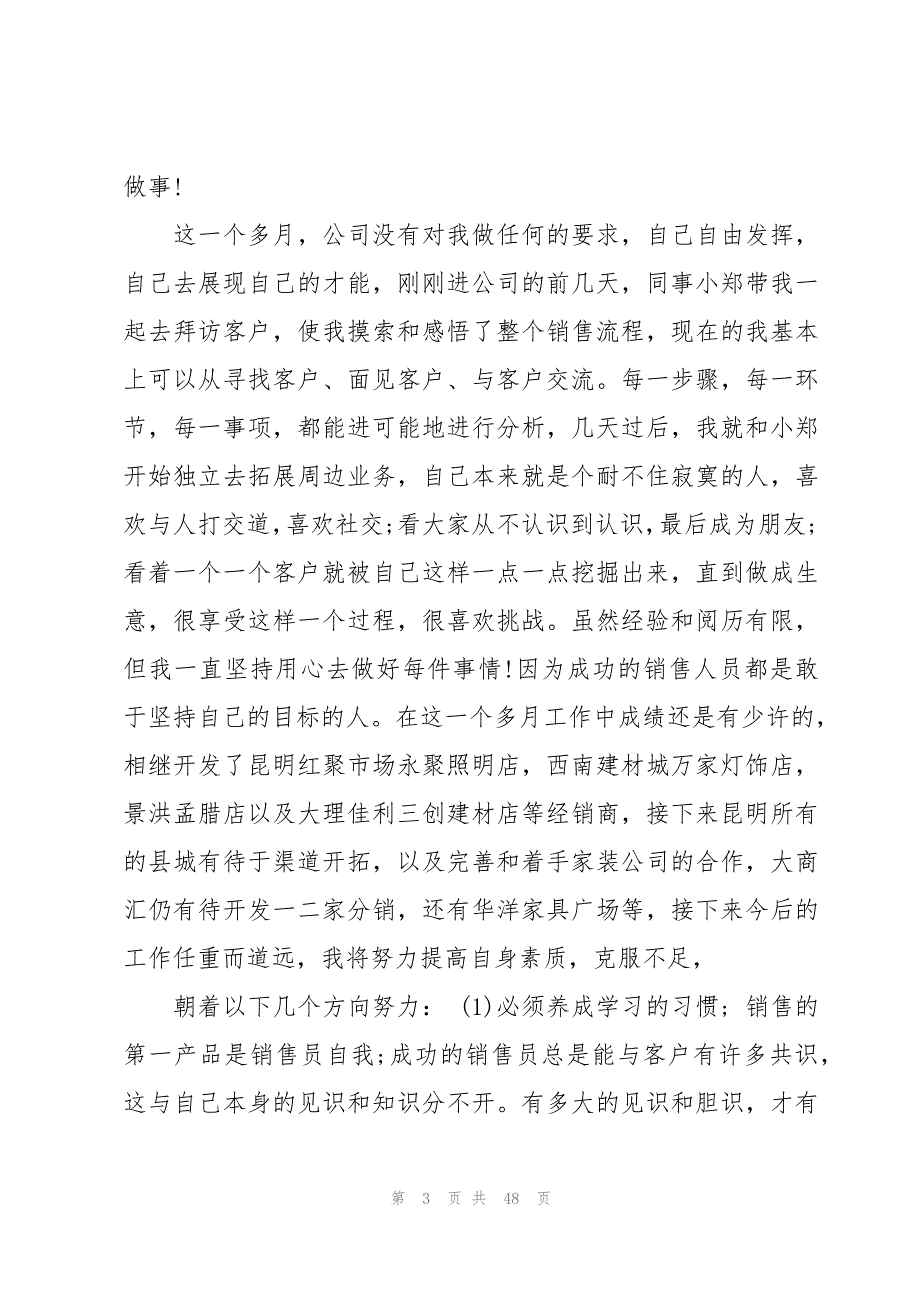 做事!
这一个多月，公司没有对我做任何的要求，自己自由发挥，
自己去展现自己的才能，刚刚进公司的前几天，同事小郑带我一
起去拜访客户，使我摸索和感悟了整个销售流程，现在的我基本
上可以从寻找客户、面见客户、与客户交流。每一步骤，每一环
节，每一事项，都能进可能地进行分析，几天过后，我就和小郑
开始独立去拓展周边业务，自己本来就是个耐不住寂寞的人，喜
欢与人打交道，喜欢社交;看大家从不认识到认识，最后成为朋友;
看着一个一个客户就被自己这样一点一点挖掘出来，直到做成生
意，很享受这样一个过程，很喜欢挑战。虽然经验和阅历有限，
但我一直坚持用心去做好每件事情!因为成功的销售人员都是敢
于坚持自己的目标的人。在这一个多月工作中成绩还是有少许的，
相继开发了昆明红聚市场永聚照明店，西南建材城万家灯饰店，
景洪孟腊店以及大理佳利三创建材店等经销商，接下来昆明所有
的县城有待于渠道开拓，以及完善和着手家装公司的合作，大商
汇仍有待开发一二家分销，还有华洋家具广场等，接下来今后的
工作任重而道远，我将努力提高自身素质，克服不足，
朝着以下几个方向努力： (1)必须养成学习的习惯; 销售的
第一产品是销售员自我;成功的销售员总是能与客户有许多共识，
这与自己本身的见识和知识分不开。有多大的见识和胆识，才有
第 3 页 共 48 页